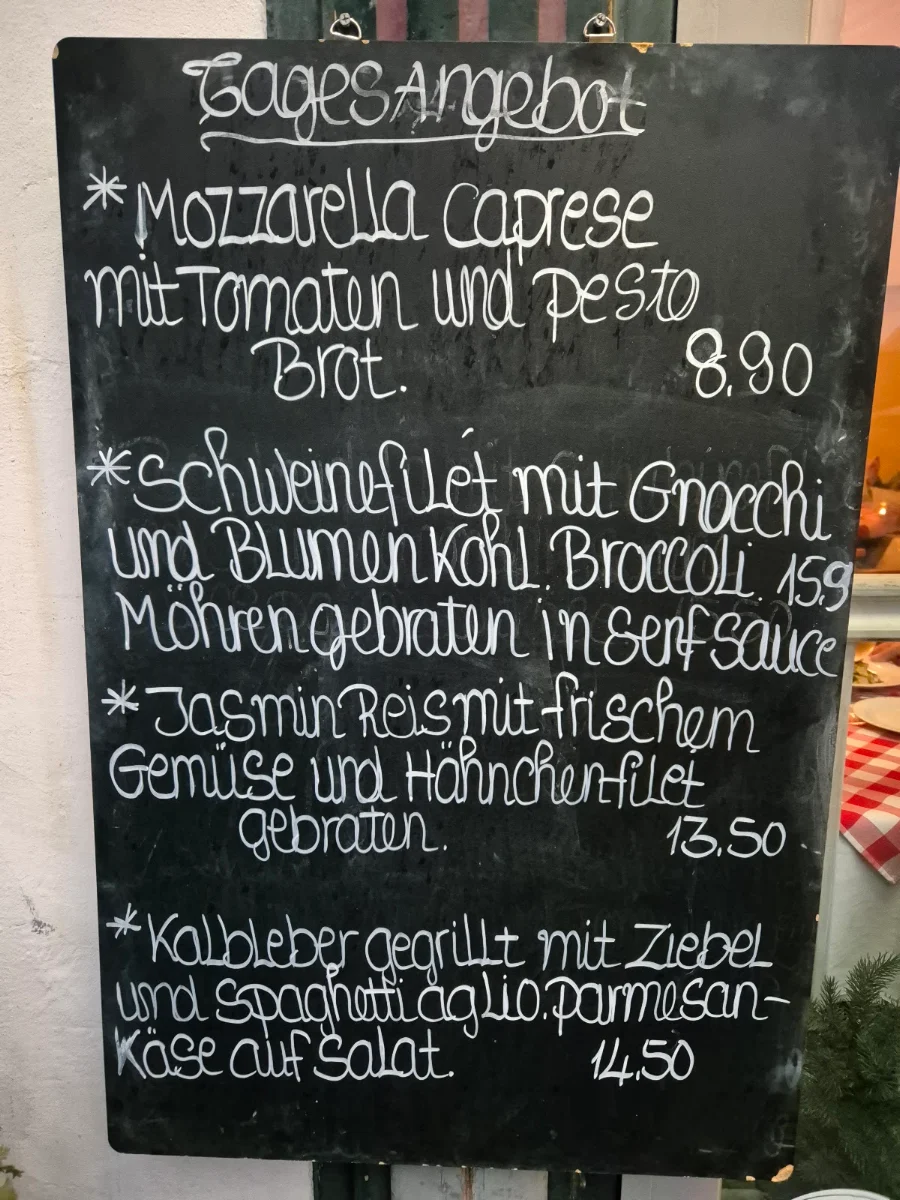 TagesAngebot
* Mozzarella Caprese
mit Tomaten und Pesto
Brot. 8.90
* Schweinefilét mit Gnocchi
und BlumenKohl. Broccoli. 15.9
Möhren gebraten in Senf Sauce
* Jasmin Reis mit frischem
Gemüse und Hähnchenfilet
gebraten. 13.50
* Kalbleber gegrillt mit Ziebel
und Spaghetti aglio. Parmesan-
Käse auf Salat. 14.50